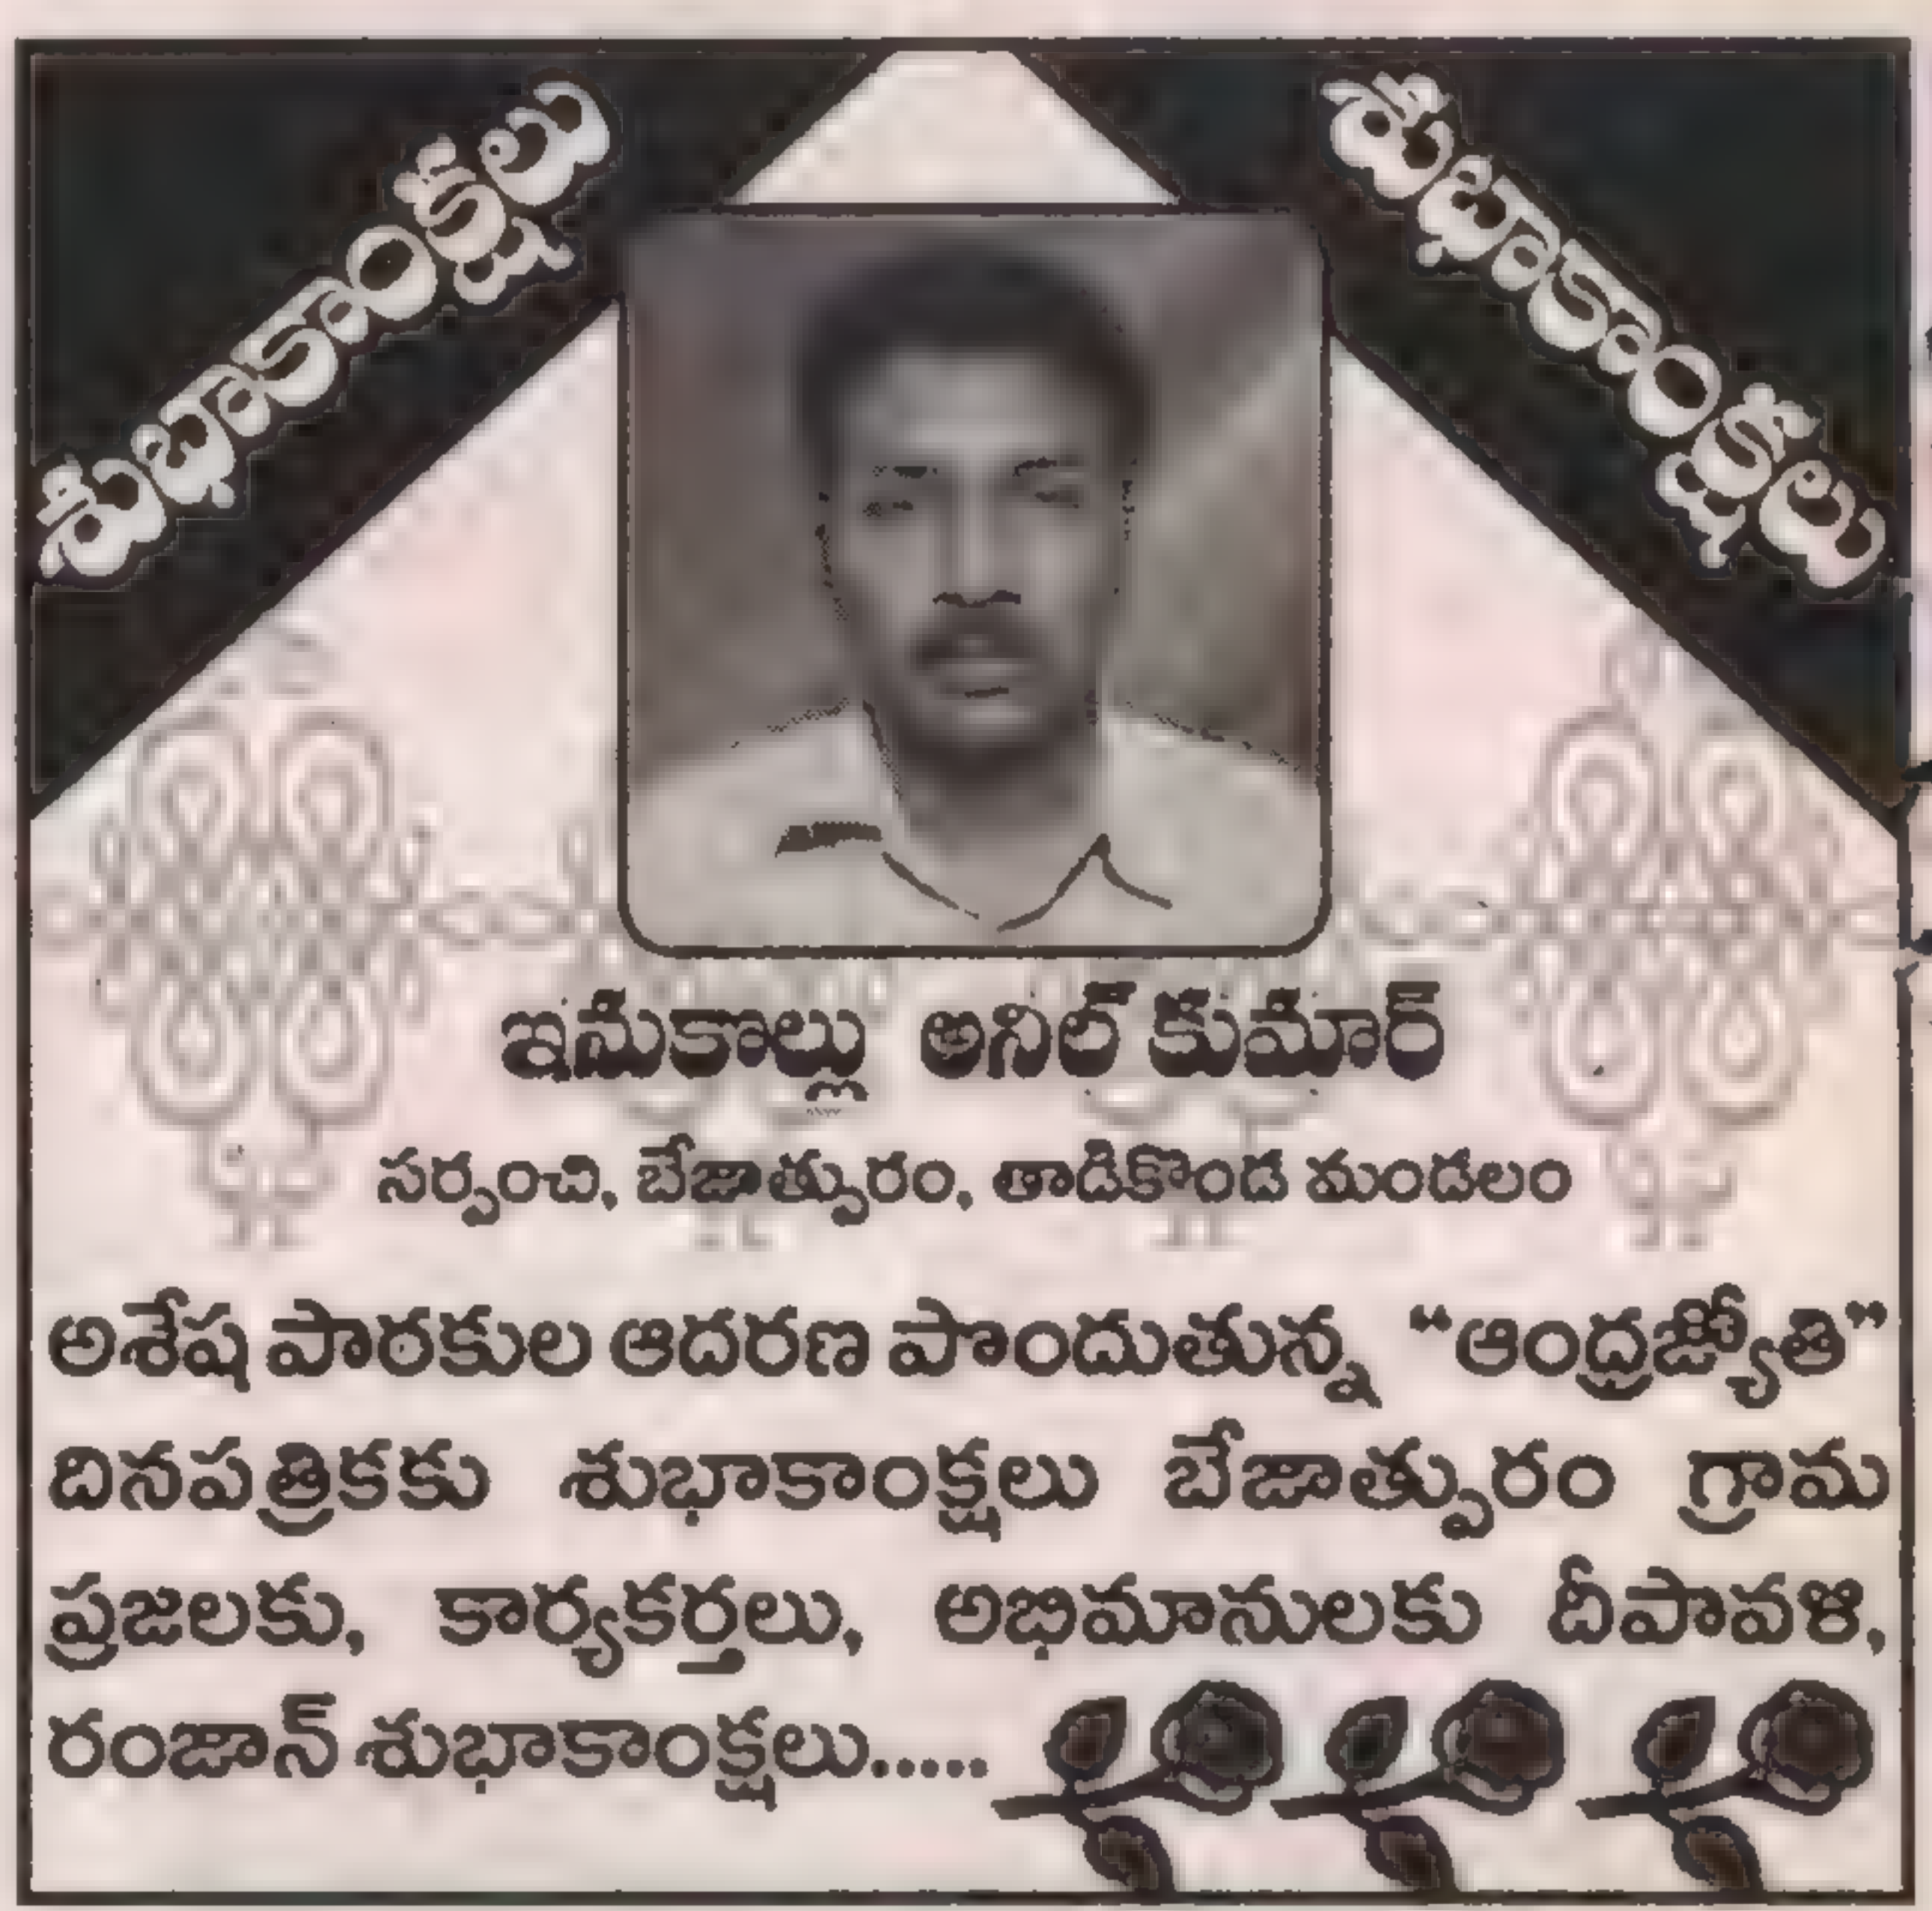 శుభాకాంక్షలు
శుభాకాంక్షలు
ఇనుకొల్లు అనిల్ కుమార్
సర్పంచి, బేజాత్పురం, తాడికొండ మండలం
అశేష పాఠకుల ఆదరణ పొందుతున్న “ఆంధ్రజ్యోతి”
దినపత్రికకు శుభాకాంక్షలు బేజాత్పురం గ్రామ
ప్రజలకు, కార్యకర్తలు, అభిమానులకు దీపావళి,
రంజాన్ శుభాకాంక్షలు.....